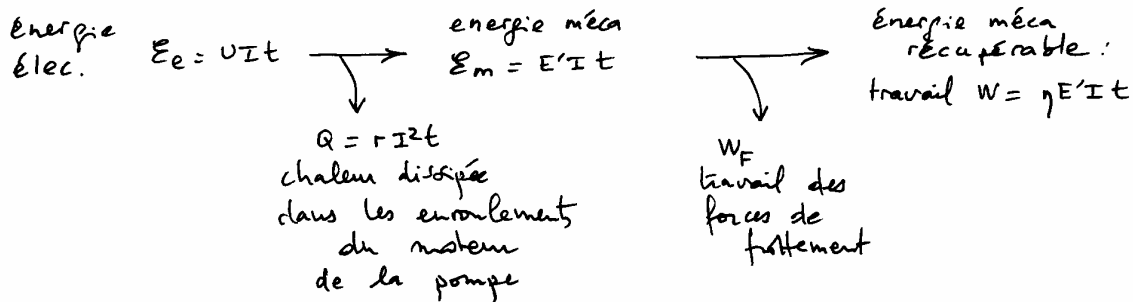 énergie
élec.
Ee = UIt
energie méca
Em = E'It
énergie méca
récupérable :
travail W = ηE'It
Q = rI²t
chaleur dissipée
dans les enroulements
du moteur
de la pompe
WF
travail des
forces de
frottement